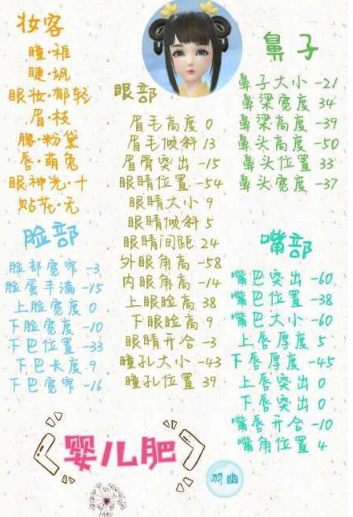 妆容
瞳·稚
睫·帆
眼妆·郁轻
眉·枝
腮·粉黛
唇·萌兔
眼神光·十
贴花·无
脸部
脸部宽窄 -3
脸蛋丰满 -15
上脸宽度 0
下脸宽度 -10
下巴位置 -33
下巴长度 9
下巴宽窄 -16
眼部
眉毛高度 0
眉毛倾斜 13
眉骨突出 -15
眼睛位置 -54
眼睛大小 9
眼睛倾斜 5
眼睛间距 24
外眼角高 -58
内眼角高 -14
上眼睑高 38
下眼睑高 9
眼睛开合 -3
瞳孔大小 -43
瞳孔位置 39
鼻子
鼻子大小 -21
鼻梁宽度 34
鼻梁高度 -39
鼻头高度 -50
鼻头位置 33
鼻头宽度 -37
嘴部
嘴巴突出 -60
嘴巴位置 -38
嘴巴大小 -60
上唇厚度 5
下唇厚度 -45
上唇突出 0
下唇突出 0
嘴唇开合 -10
嘴角位置 4
婴儿肥
羽幽